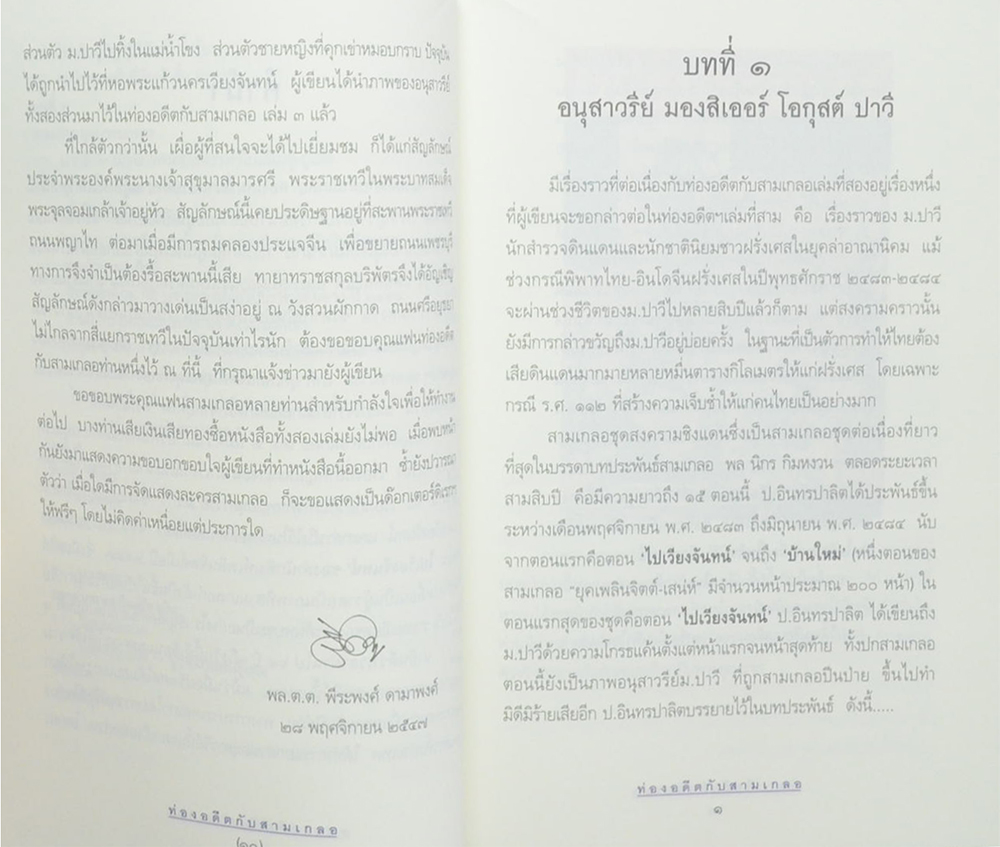 ส่วนตัว ม.ปาวีไปทิ้งในแม่น้ำโขง ส่วนตัวชายหญิงที่คุกเข่าหมอบกราบ ปัจจุบัน
ได้ถูกนำไปไว้ที่หอพระแก้วนครเวียงจันทน์ ผู้เขียนได้นำภาพของอนุสาวรีย์
ทั้งสองส่วนมาไว้ในท่องอดีตกับสามเกลอ เล่ม ๓ แล้ว
ที่ใกล้ตัวกว่านั้น เผื่อผู้ที่สนใจจะได้ไปเยี่ยมชม ก็ได้แก่สัญลักษณ์
ประจำพระองค์พระนางเจ้าสุขุมาลมารศรี พระราชเทวีในพระบาทสมเด็จ
พระจุลจอมเกล้าเจ้าอยู่หัว สัญลักษณ์นี้เคยประดิษฐานอยู่ที่สะพานพระราชเทวี
ถนนพญาไท ต่อมาเมื่อมีการถมคลองประแจจีน เพื่อขยายถนนเพชรบุรี
ทางการจึงจำเป็นต้องรื้อสะพานนี้เสีย ทายาทราชสกุลบริพัตรจึงได้อัญเชิญ
สัญลักษณ์ดังกล่าวมาวางเด่นเป็นสง่าอยู่ ณ วังสวนผักกาด ถนนศรีอยุธยา
ไม่ไกลจากสี่แยกราชเทวีในปัจจุบันเท่าไรนัก ต้องขอขอบคุณแฟนท่องอดีต
กับสามเกลอท่านหนึ่งไว้ ณ ที่นี้ ที่กรุณาแจ้งข่าวมายังผู้เขียน
ขอขอบพระคุณแฟนสามเกลอหลายท่านสำหรับกำลังใจเพื่อให้ทำงาน
ต่อไป บางท่านเสียเงินเสียทองซื้อหนังสือทั้งสองเล่มยังไม่พอ เมื่อพบหน้า
กันยังมาแสดงความขอบอกขอบใจผู้เขียนที่ทำหนังสือนี้ออกมา ซ้ำยังปวารณา
ตัวว่า เมื่อใดมีการจัดแสดงละครสามเกลอ ก็จะขอแสดงเป็นด๊อกเตอร์ดิเรก
ให้ฟรีๆ โดยไม่คิดค่าเหนื่อยแต่ประการใด
พล.ต.ต. พีระพงศ์ ดามาพงศ์
๒๘ พฤศจิกายน ๒๕๔๗
ท่องอดีตกับสามเกลอ
บทที่ ๑
อนุสาวรีย์ มองสิเออร์ โอกุสต์ ปาวี
มีเรื่องราวที่ต่อเนื่องกับท่องอดีตกับสามเกลอเล่มที่สองอยู่เรื่องหนึ่ง
ที่ผู้เขียนจะขอกล่าวต่อในท่องอดีตฯเล่มที่สาม คือ เรื่องราวของ ม.ปาวี
นักสำรวจดินแดนและนักชาตินิยมชาวฝรั่งเศสในยุคล่าอาณานิคม แม้
ช่วงกรณีพิพาทไทย-อินโดจีนฝรั่งเศสในปีพุทธศักราช ๒๔๘๓-๒๔๘๔
จะผ่านช่วงชีวิตของม.ปาวีไปหลายสิบปีแล้วก็ตาม แต่สงครามคราวนั้น
ยังมีการกล่าวขวัญถึงม.ปาวีอยู่บ่อยครั้ง ในฐานะที่เป็นตัวการทำให้ไทยต้อง
เสียดินแดนมากมายหลายหมื่นตารางกิโลเมตรให้แก่ฝรั่งเศส โดยเฉพาะ
กรณี ร.ศ. ๑๑๒ ที่สร้างความเจ็บช้ำให้แก่คนไทยเป็นอย่างมาก
สามเกลอชุดสงครามชิงแดนซึ่งเป็นสามเกลอชุดต่อเนื่องที่ยาว
ที่สุดในบรรดาบทประพันธ์สามเกลอ พล นิกร กิมหงวน ตลอดระยะเวลา
สามสิบปี คือมีความยาวถึง ๑๕ ตอนนี้ ป.อินทรปาลิตได้ประพันธ์ขึ้น
ระหว่างเดือนพฤศจิกายน พ.ศ. ๒๔๘๓ ถึงมิถุนายน พ.ศ. ๒๔๘๔ นับ
จากตอนแรกคือตอน 'ไปเวียงจันทน์' จนถึง 'บ้านใหม่' (หนึ่งตอนของ
สามเกลอ "ยุคเพลินจิตต์-เสน่ห์" มีจำนวนหน้าประมาณ ๒๐๐ หน้า) ใน
ตอนแรกสุดของชุดคือตอน 'ไปเวียงจันทน์' ป.อินทรปาลิต ได้เขียนถึง
ม.ปาวีด้วยความโกรธแค้นตั้งแต่หน้าแรกจนหน้าสุดท้าย ทั้งปกสามเกลอ
ตอนนี้ยังเป็นภาพอนุสาวรีย์ม.ปาวี ที่ถูกสามเกลอปีนป่าย ขึ้นไปทำ
มิดีมิร้ายเสียอีก ป.อินทรปาลิตบรรยายไว้ในบทประพันธ์ ดังนี้.....
ท่องอดีตกับสามเกลอ
๑